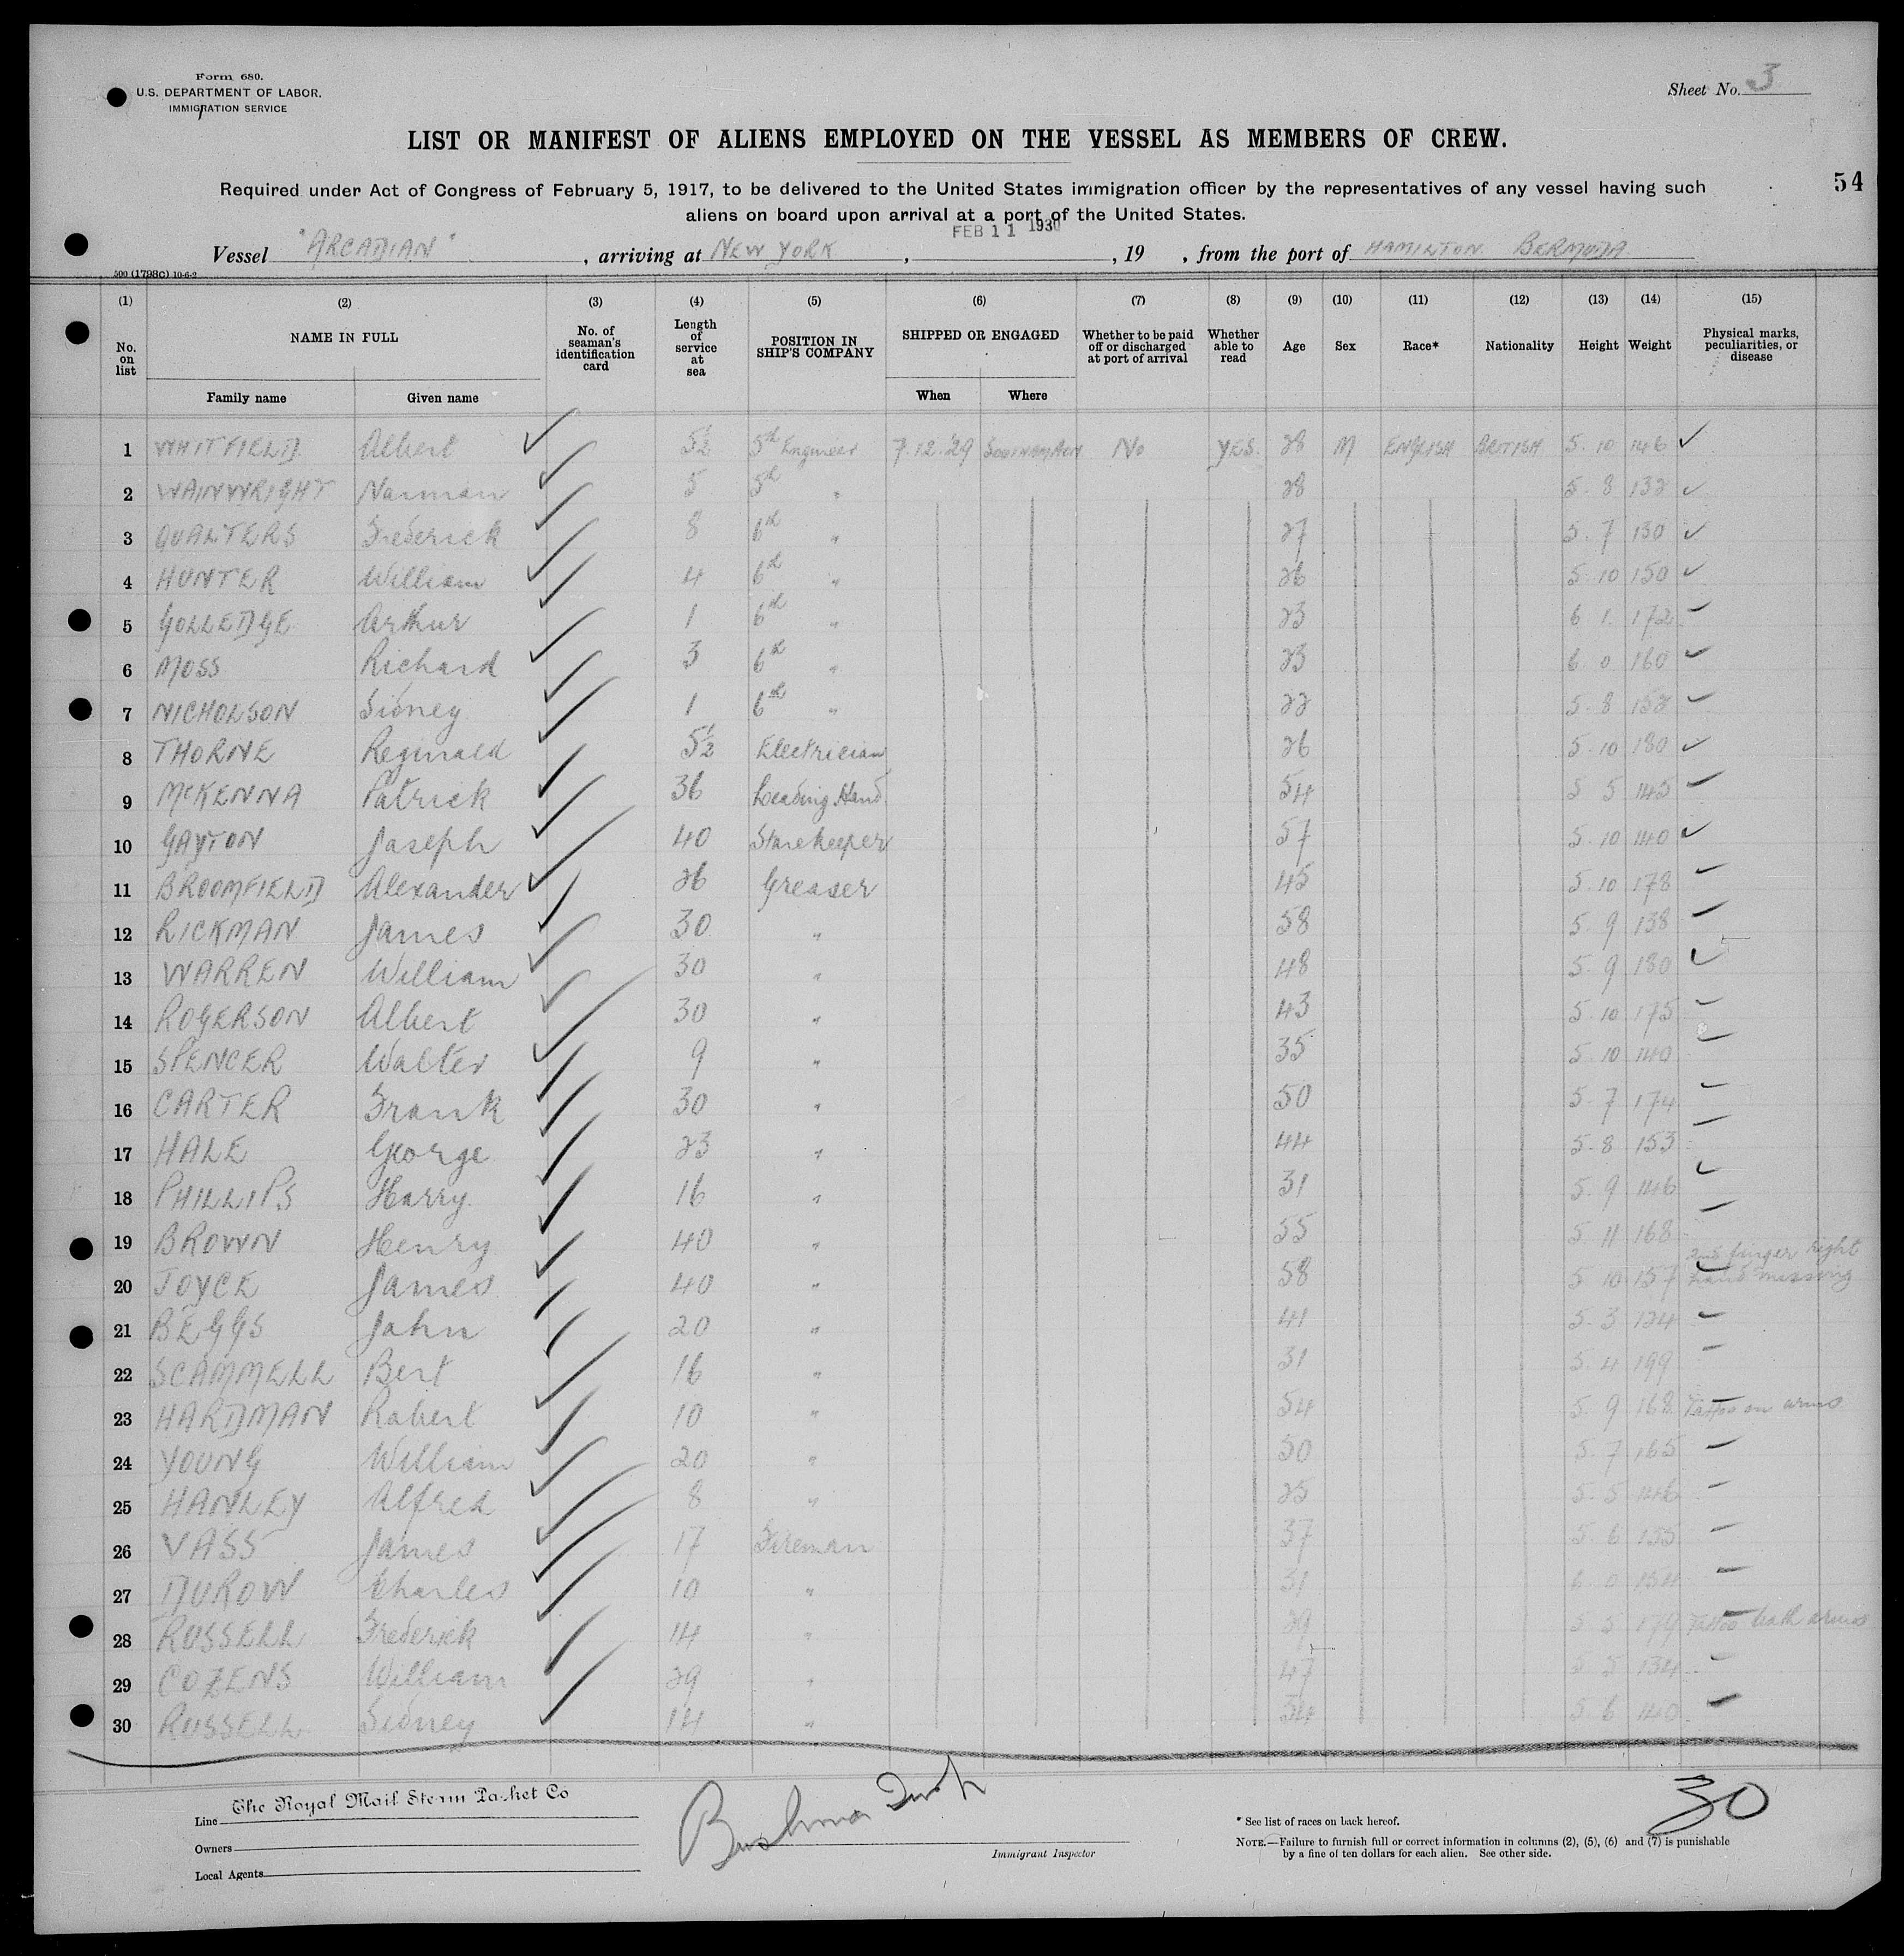 Form 680.
U.S. DEPARTMENT OF LABOR.
IMMIGRATION SERVICE
Sheet No. 3
LIST OR MANIFEST OF ALIENS EMPLOYED ON THE VESSEL AS MEMBERS OF CREW.
Required under Act of Congress of February 5, 1917, to be delivered to the United States immigration officer by the representatives of any vessel having such
aliens on board upon arrival at a port of the United States.
54
FEB 11 1930
Vessel "ARCADIAN", arriving at NEW YORK, , 19 , from the port of HAMILTON BERMUDA
500 (1798c) 10-6-2
(1) (2) (3) (4) (5) (6) (7) (8) (9) (10) (11) (12) (13) (14) (15)
No. on list NAME IN FULL No. of seaman's identification card Length of service at sea POSITION IN SHIP'S COMPANY SHIPPED OR ENGAGED Whether to be paid off or discharged at port of arrival Whether able to read Age Sex Race* Nationality Height Weight Physical marks, peculiarities, or disease
Family name Given name When Where
1 WHITFIELD Albert 5½ 5th Engineer 7.12.29 SOUTHAMPTON No YES. 28 M ENGLISH BRITISH 5. 10 146
2 WAINWRIGHT Norman 5 5th " 28 5. 8 132
3 QUALTERS Frederick 8 6th " 27 5. 7 130
4 HUNTER William 4 6th " 26 5. 10 150
5 GOLLEDGE Arthur 1 6th " 23 6 1. 172
6 MOSS Richard 3 6th " 23 6. 0. 160
7 NICHOLSON Sidney 1 6th " 22 5. 8 152
8 THORNE Reginald 5½ Electrician 26 5. 10 180
9 McKENNA Patrick 36 Leading Hand 54 5 5 145
10 GAYTON Joseph 40 Storekeeper 57 5. 10 140
11 BROOMFIELD Alexander 26 Greaser 45 5. 10 178
12 RICKMAN James 30 " 58 5. 9 138
13 WARREN William 30 " 48 5. 9 130
14 ROGERSON Albert 30 " 43 5. 10 175
15 SPENCER Walter 9 " 35 5. 10 140
16 CARTER Frank 30 " 50 5. 7 174
17 HALE George 23 " 44 5. 8 153
18 PHILLIPS Harry 16 " 31 5. 9 146
19 BROWN Henry 40 " 55 5. 11 168
20 JOYCE James 40 " 58 5 10 157 2nd finger right hand missing
21 BEGGS John 20 " 41 5. 3 124
22 SCAMMELL Bert 16 " 31 5. 4 199
23 HARDMAN Robert 10 " 54 5. 9 168 Tattoo on arms
24 YOUNG William 20 " 50 5. 7 165
25 HANLEY Alfred 8 " 25 5. 5 146
26 VASS James 17 Fireman 37 5. 6 135
27 DUROW Charles 10 " 31 6. 0 154
28 RUSSELL Frederick 14 " 29 5 5 179 Tattoo both arms
29 COZENS William 29 " 47 5 5 134
30 RUSSELL Sidney 14 " 34 5 6 140
Line The Royal Mail Steam Packet Co
Owners
Local Agents
Immigrant Inspector
* See list of races on back hereof.
NOTE.—Failure to furnish full or correct information in columns (2), (5), (6) and (7) is punishable
by a fine of ten dollars for each alien. See other side.
30